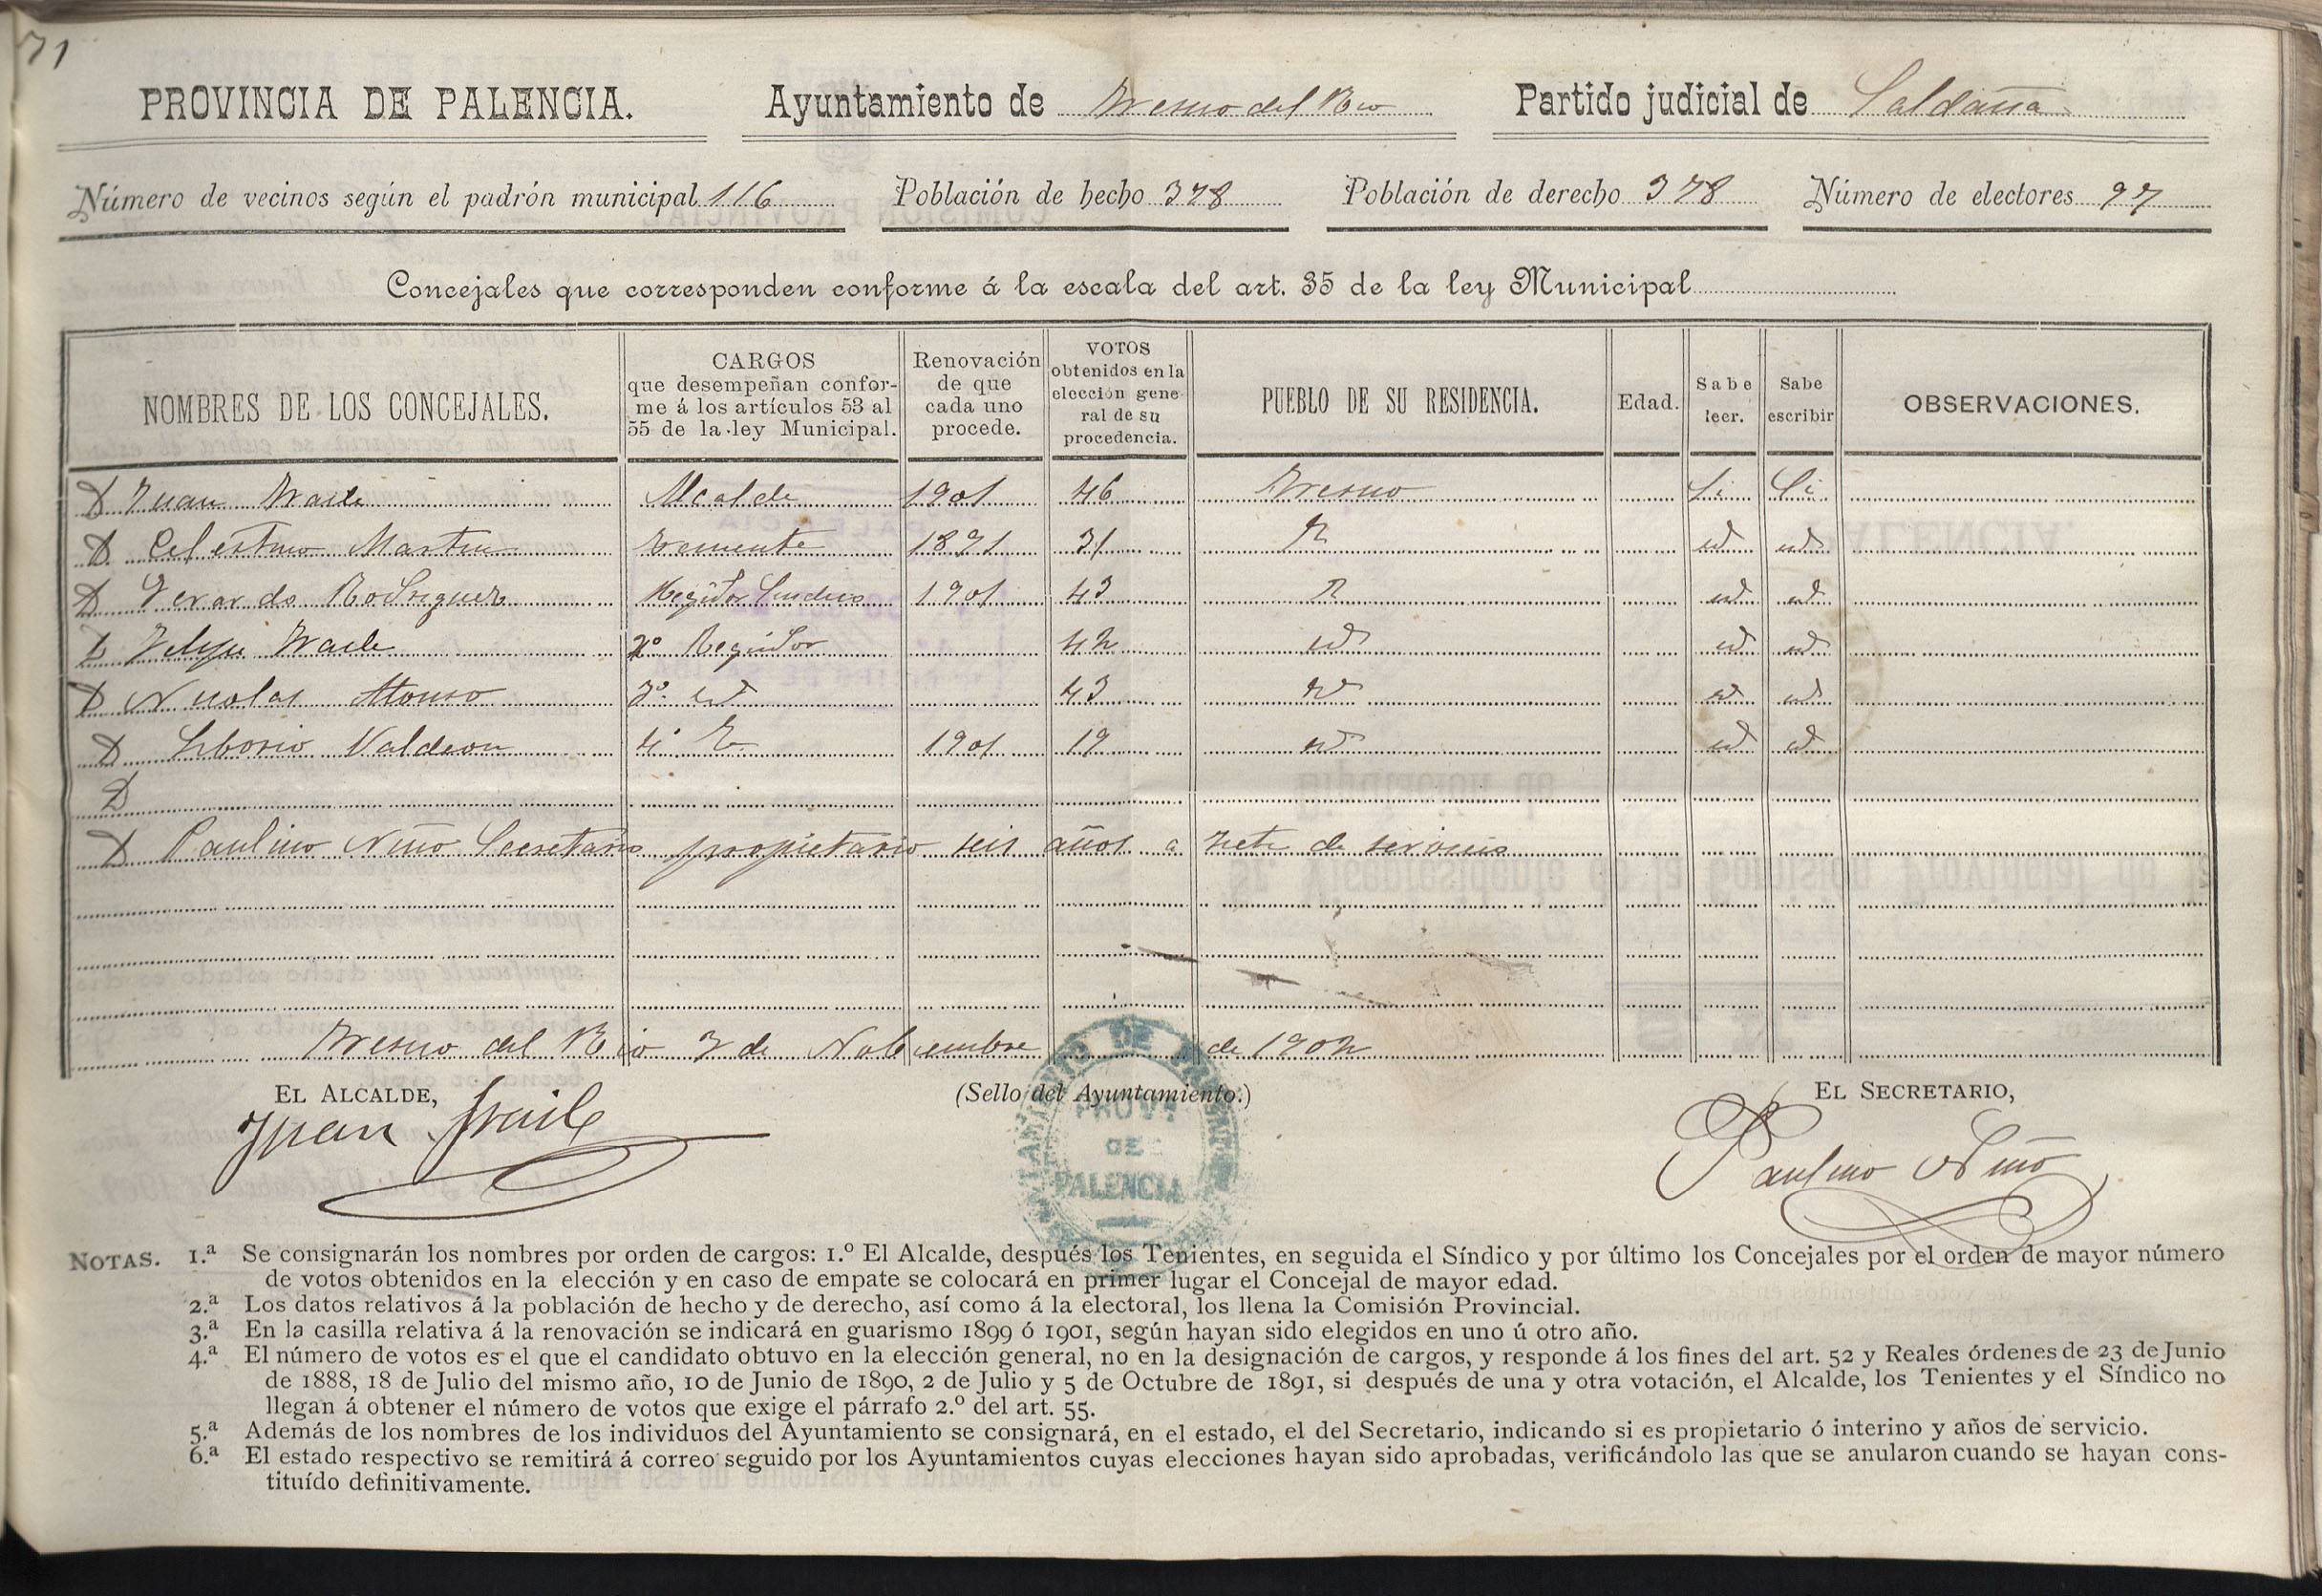 71
PROVINCIA DE PALENCIA. Ayuntamiento de Fresno del Rio Partido judicial de Saldaña
Número de vecinos según el padrón municipal 116 Población de hecho 378 Población de derecho 378 Número de electores 97
Concejales que corresponden conforme á la escala del art. 35 de la ley Municipal
NOMBRES DE LOS CONCEJALES.
CARGOS
que desempeñan confor-
me á los artículos 53 al
55 de la ley Municipal.
Renovación
de que
cada uno
procede.
VOTOS
obtenidos en la
elección gene
ral de su
procedencia.
PUEBLO DE SU RESIDENCIA.
Edad.
Sabe
leer.
Sabe
escribir
OBSERVACIONES.
D Juan Fraile Alcalde 1901 46 Fresno Si Si
D Celestino Martin Teniente 1891 31 id id
D Gerardo Rodriguez Regidor Sindico 1901 43 id id
D Felipe Fraile 2º Regidor 42 id id id
D Nicolas Alonso 3º id 43 id id id
D Liborio Valdeon 4º 1901 19 id id id
D
D Paulino Niño Secretario propietario seis años a siete de servicio
Fresno del Rio 3 de Nobiembre de 1902
EL ALCALDE, (Sello del Ayuntamiento.) EL SECRETARIO,
Juan Fraile
Paulino Niño
PROVª
DE
PALENCIA
NOTAS. 1.ª Se consignarán los nombres por orden de cargos: 1.º El Alcalde, después los Tenientes, en seguida el Síndico y por último los Concejales por el orden de mayor número
de votos obtenidos en la elección y en caso de empate se colocará en primer lugar el Concejal de mayor edad.
2.ª Los datos relativos á la población de hecho y de derecho, así como á la electoral, los llena la Comisión Provincial.
3.ª En la casilla relativa á la renovación se indicará en guarismo 1899 ó 1901, según hayan sido elegidos en uno ú otro año.
4.ª El número de votos es el que el candidato obtuvo en la elección general, no en la designación de cargos, y responde á los fines del art. 52 y Reales órdenes de 23 de Junio
de 1888, 18 de Julio del mismo año, 10 de Junio de 1890, 2 de Julio y 5 de Octubre de 1891, si después de una y otra votación, el Alcalde, los Tenientes y el Síndico no
llegan á obtener el número de votos que exige el párrafo 2.º del art. 55.
5.ª Además de los nombres de los individuos del Ayuntamiento se consignará, en el estado, el del Secretario, indicando si es propietario ó interino y años de servicio.
6.ª El estado respectivo se remitirá á correo seguido por los Ayuntamientos cuyas elecciones hayan sido aprobadas, verificándolo las que se anularon cuando se hayan cons-
tituído definitivamente.